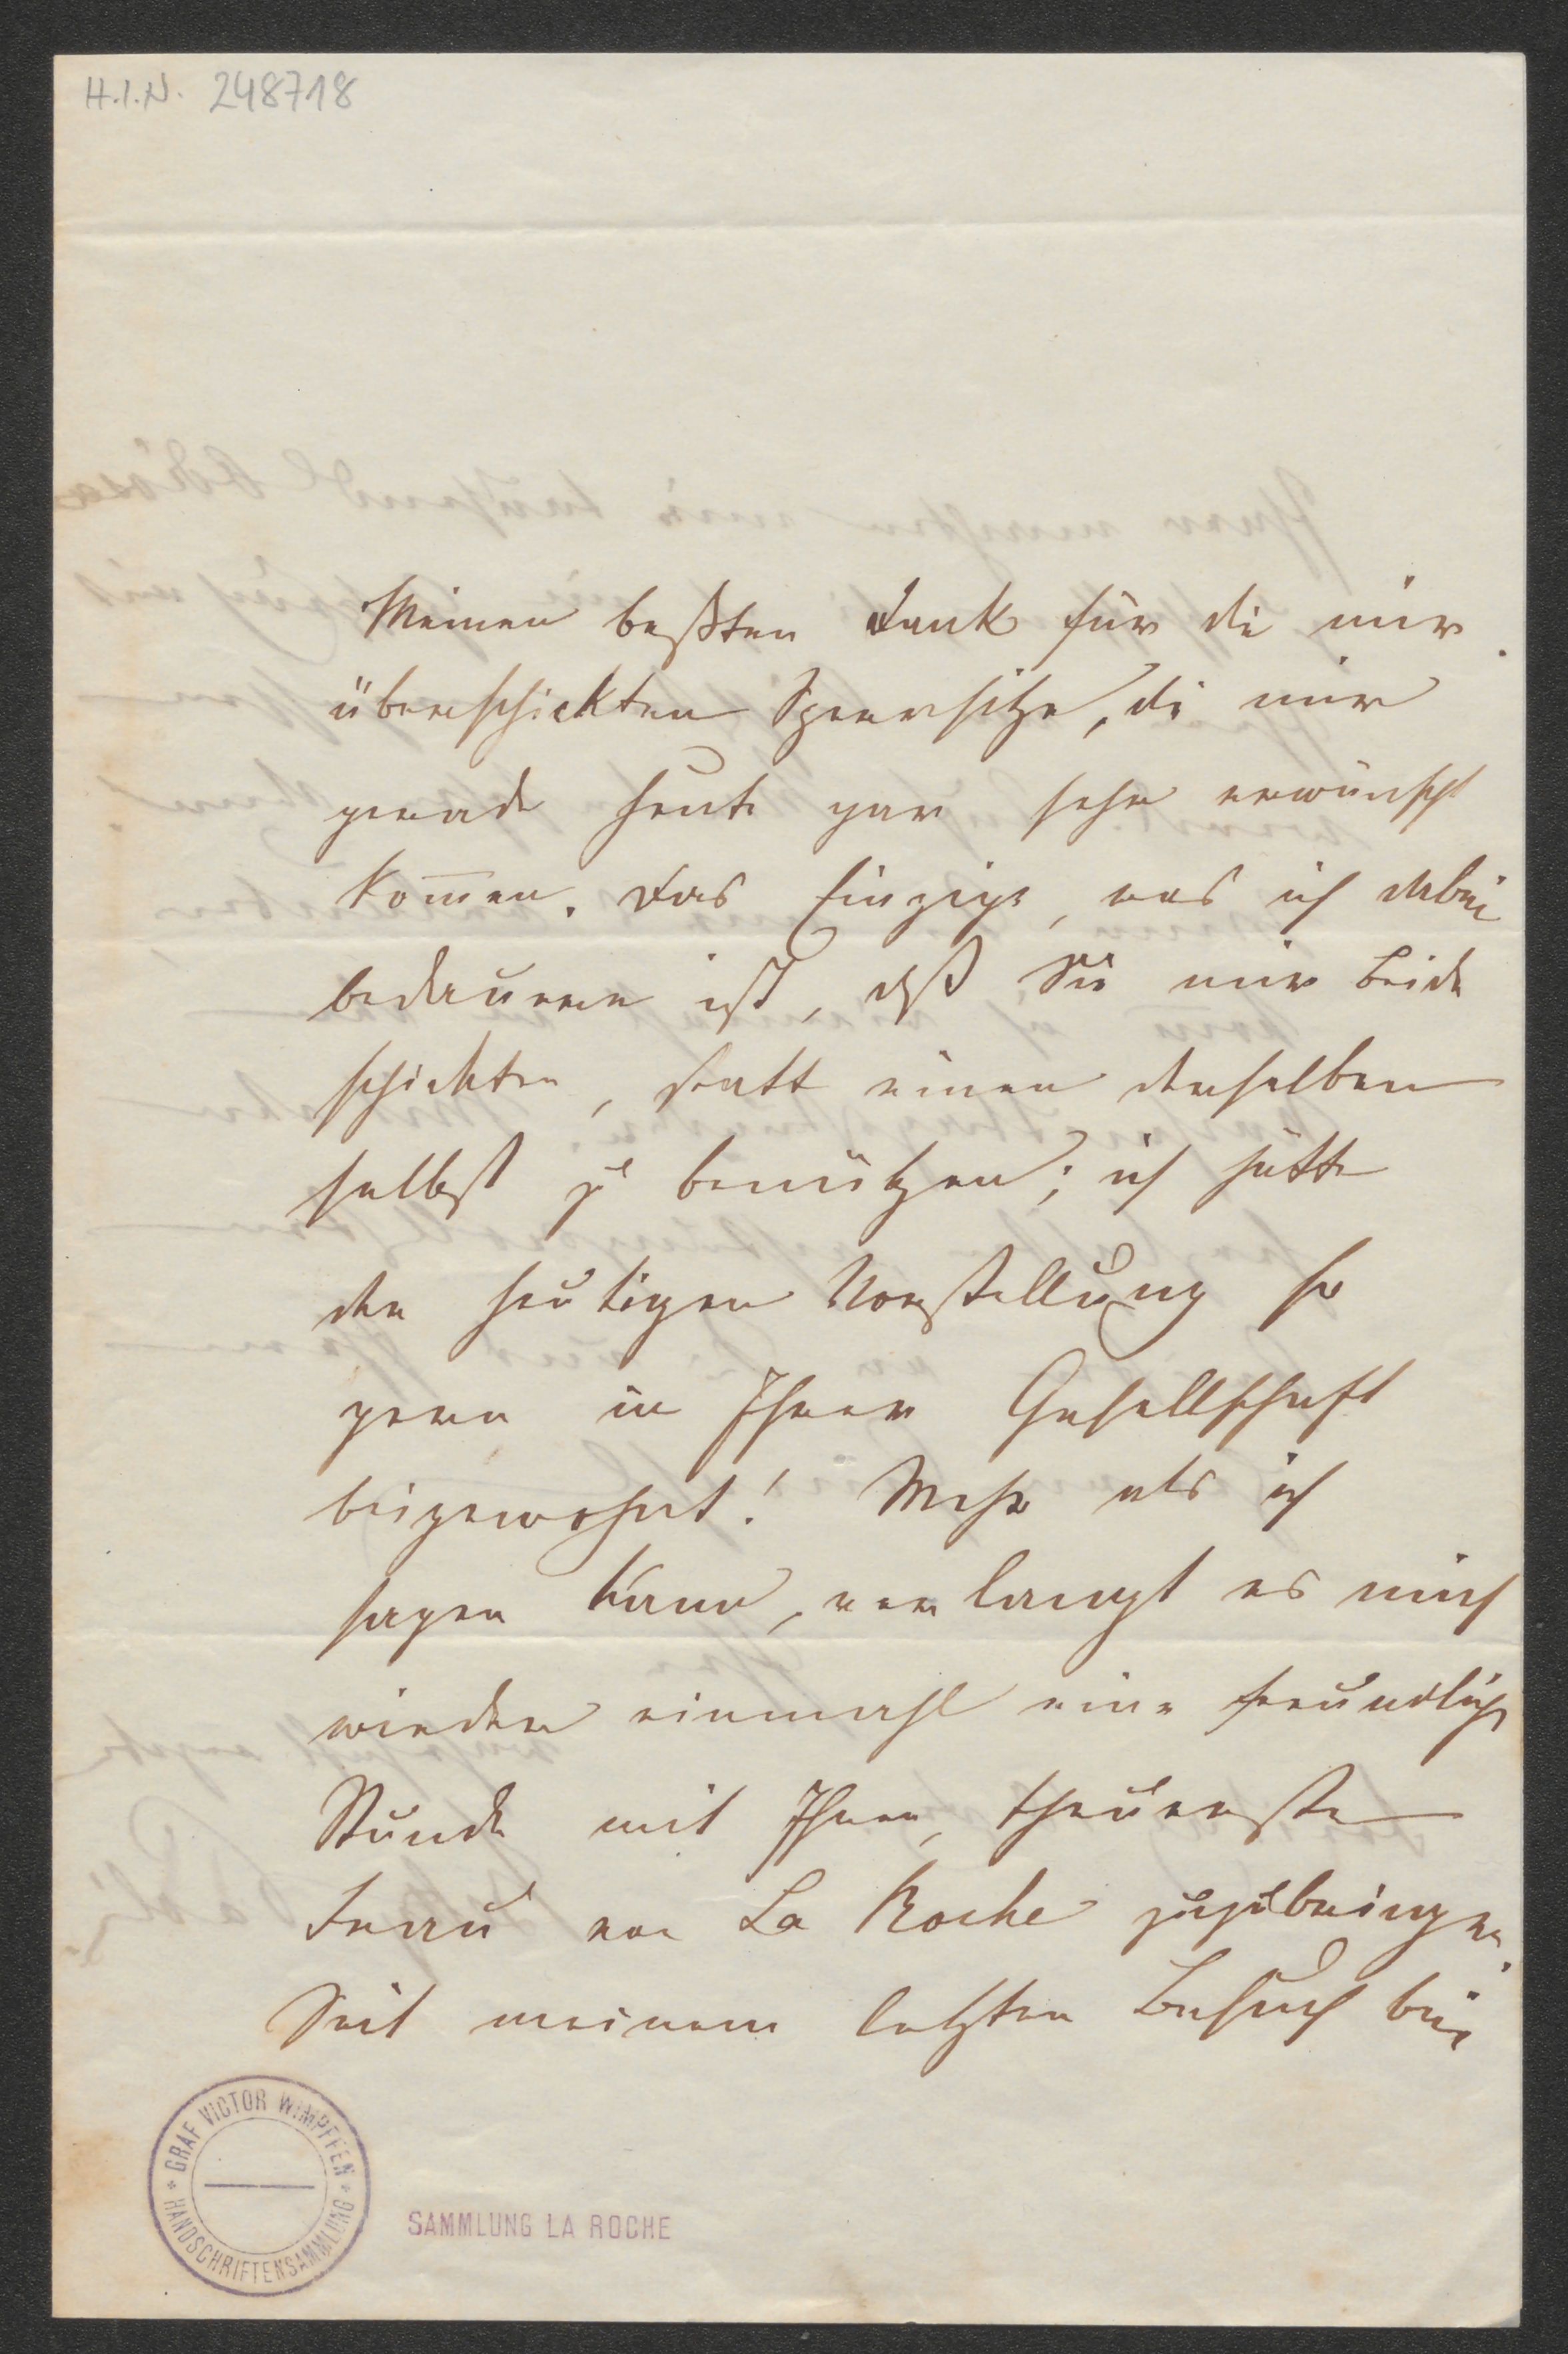 H.I.N. 248718
Meinen beßten Dank für die mir
überschickten Sperrsitze, die mir
gerade heute gar sehr erwünscht
kom̅en. Das Einzige, was ich dabei
bedauere ist, daß Sie mir beide
schickten, statt einen derselben
selbst zu benützen; ich hätte
der heutigen Vorstellung so
gern in Ihrer Gesellschaft
beigewohnt! Mehr als ich
sagen kann, verlangt es mich
wieder einmahl eine freundliche
Stunde mit Ihnen, theuerste
Frau von La Roche zuzubringen.
Seit meinem letzten Besuch bin
GRAF VICTOR WIMPFFEN
HANDSCHRIFTENSAMMLUNG
SAMMLUNG LA ROCHE